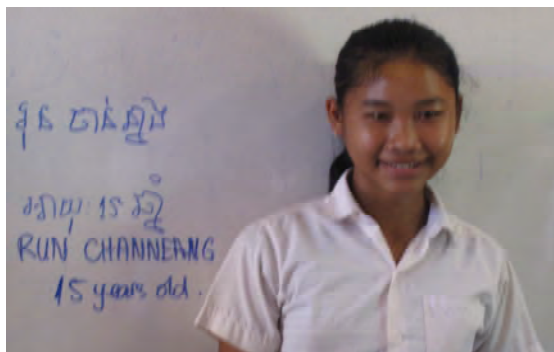 រុន ចាន់នាង
អាយុៈ 15 ឆ្នាំ
RUN CHANNEANG
15 years old.